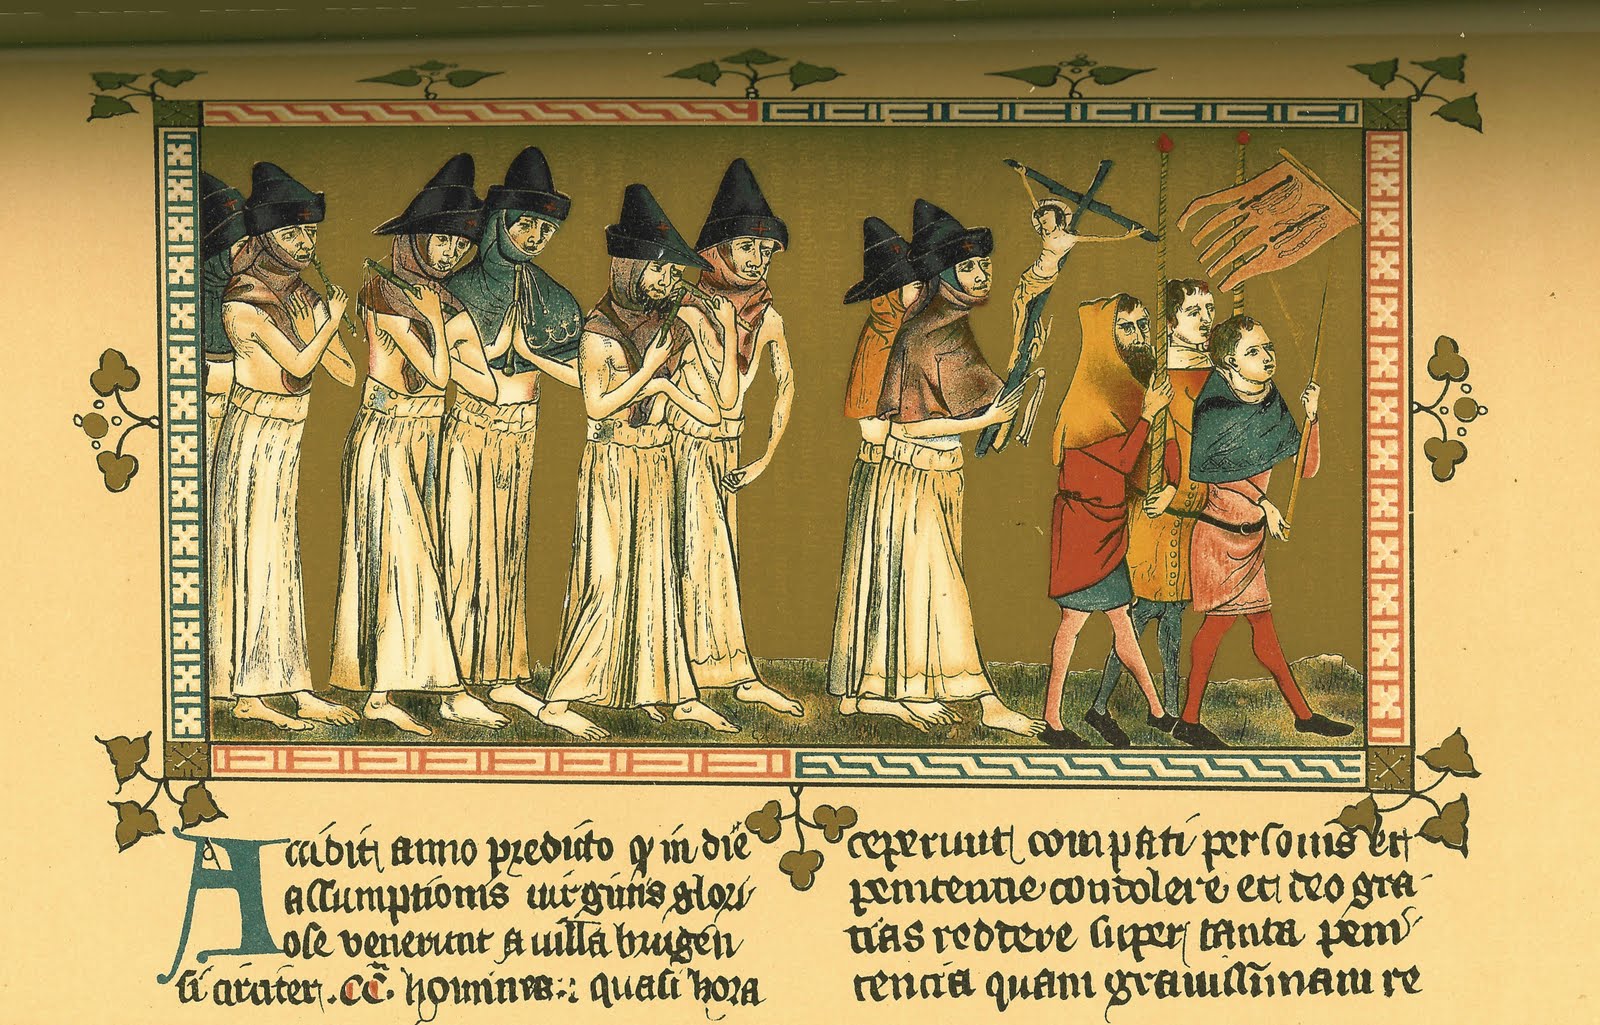 Accidit anno predicto q̃ in die
assumptionis virginis glori
ose venerunt a villa brugen
si circiter .CC.ᵃ homines :: quasi hora
ceperunt compati personis et
penitentie condolere et deo gra-
tias reddere super tanta peni-
tencia quam gravissimam re